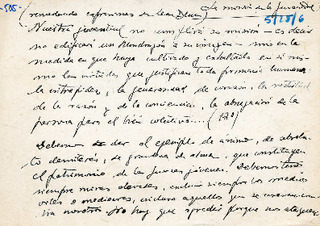 -505-
(recordando expresiones de Leon Blum) La misión de la juventud
5/15/6
Nuestra juventud no cumplirá su misión - es decir
no edificará un Mondragón a su imagen - sino en la
medida en que haya cultivado y exaltado en si mis-
mo las virtudes que justifican toda primacía humana:
la intrepidez, la generosidad de corazón, la rectitud
de la razón y de la conciencia, la abnegación de la
persona para el bien colectivo....
Debemos de dar el ejemplo de ánimo, de
de grandeza de alma, que constituyen
el patrimonio de las fuerzas jóvenes. Debemos tener
siempre miras elevadas, incluso siempre los medios
viles o mediocres, incluso aquellos que se
nosotros. No hay que porque nos